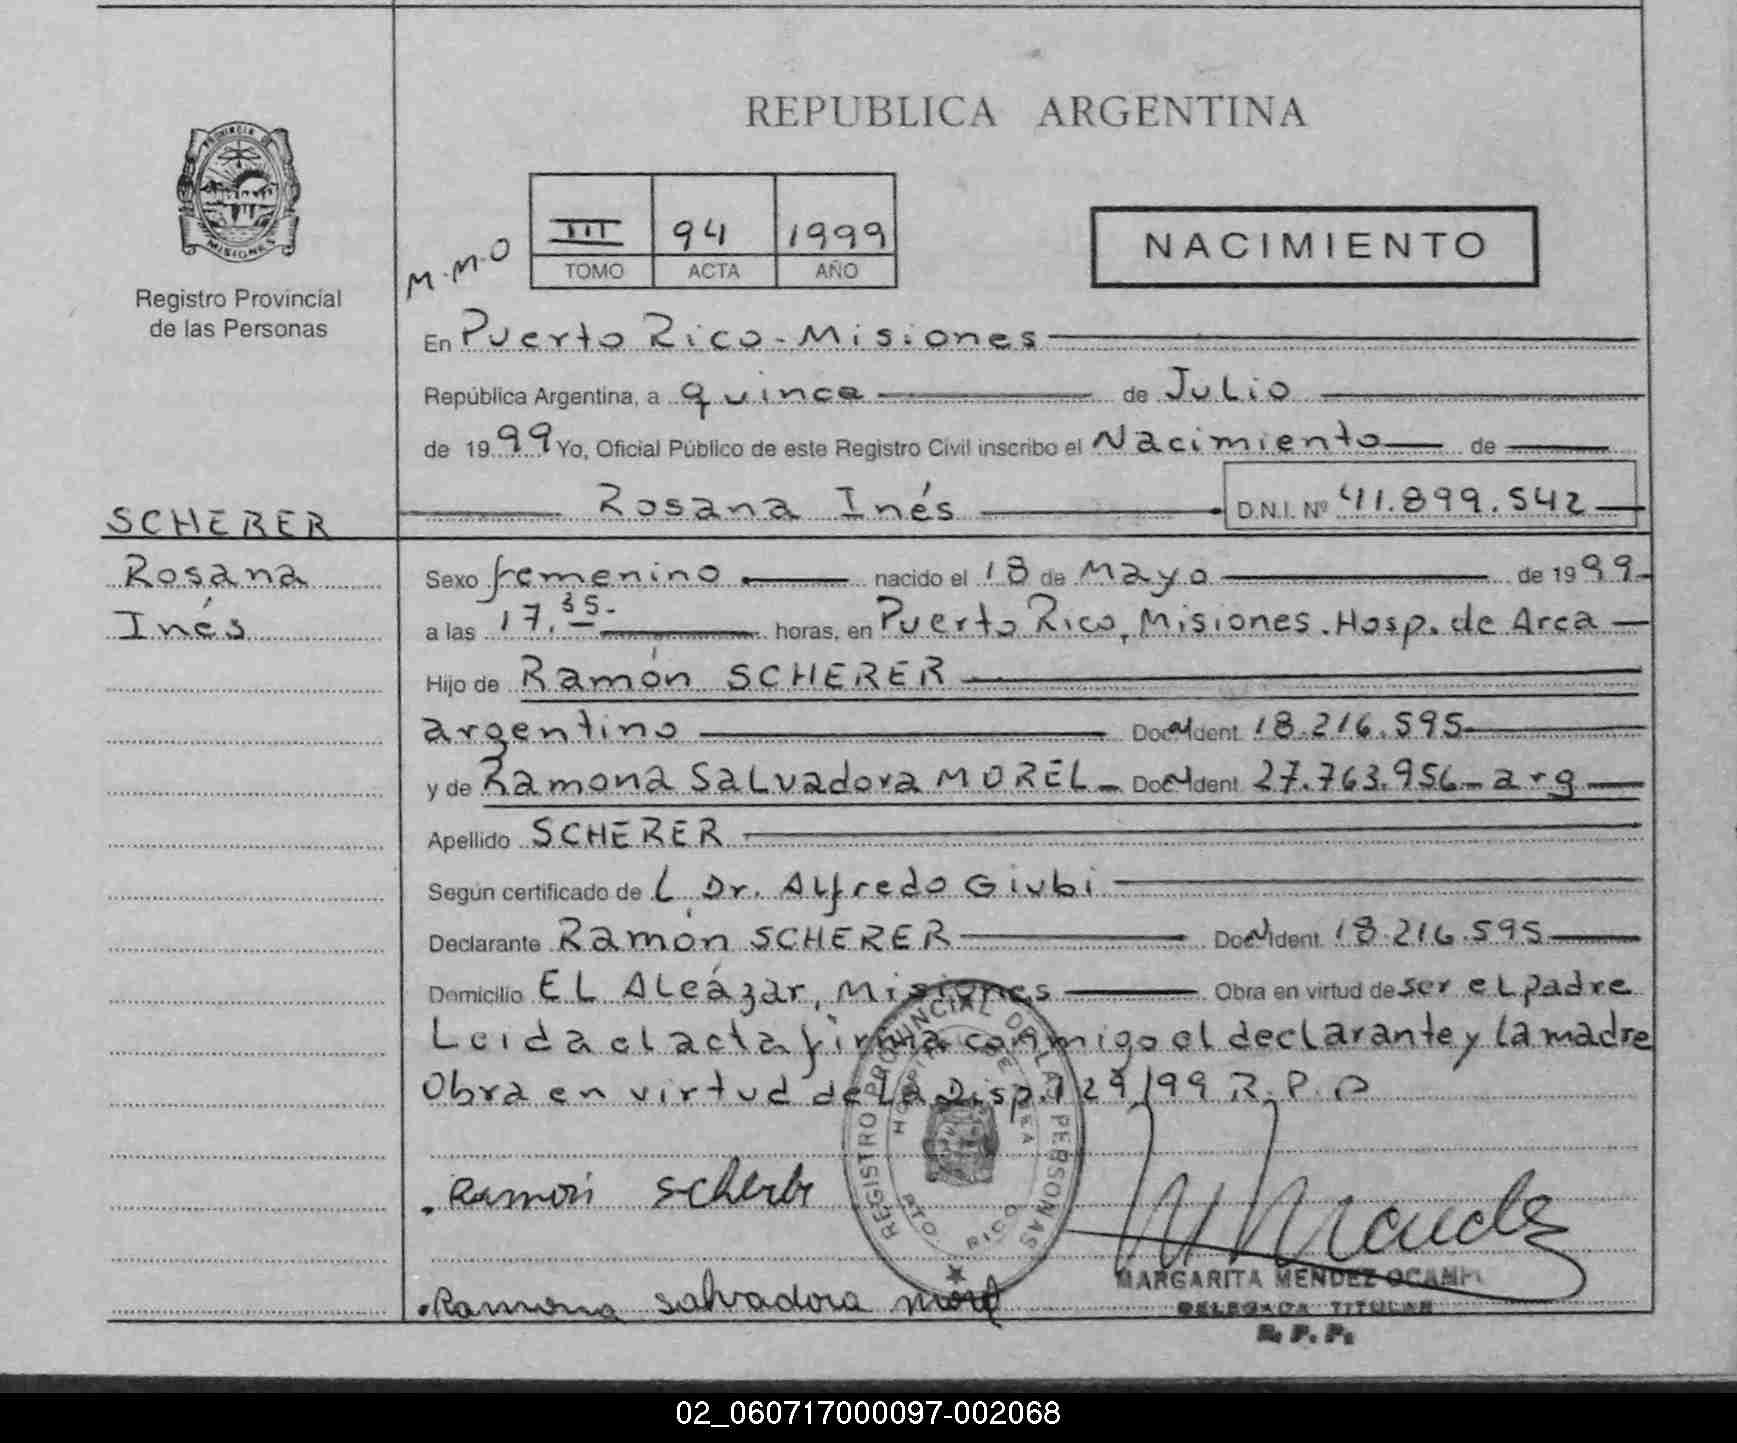 REPUBLICA ARGENTINA
PROVINCIA DE
MISIONES
Registro Provincial
de las Personas
M.M.O
III 94 1999
TOMO ACTA AÑO
NACIMIENTO
En Puerto Rico - Misiones
República Argentina, a quince de Julio
de 1999 Yo, Oficial Público de este Registro Civil inscribo el Nacimiento de
Rosana Inés D.N.I. Nº 41.899.542
SCHERER
Rosana
Inés
Sexo femenino nacido el 18 de Mayo de 1999
a las 17.35- horas, en Puerto Rico, Misiones. Hosp. de Area
Hijo de Ramón SCHERER
argentino Doc N Ident. 18.216.595
y de Ramona Salvadora MOREL Doc N Ident. 27.763.956 - arg
Apellido SCHERER
Según certificado de L Dr. Alfredo Giubi
Declarante Ramón SCHERER Doc N Ident. 18.216.595
Domicilio EL Alcázar, Misiones Obra en virtud de ser el padre
Leida el acta firma conmigo el declarante y la madre
Obra en virtud de la Disp. 129/99 R.P.P
REGISTRO PROVINCIAL DE LAS PERSONAS
HOSPITAL DE AREA
PTO. RICO
Ramón Scherer
Ramona Salvadora Morel
MARGARITA MENDEZ OCAMPO
DELEGADA TITULAR
R. P. P.
02_060717000097-002068